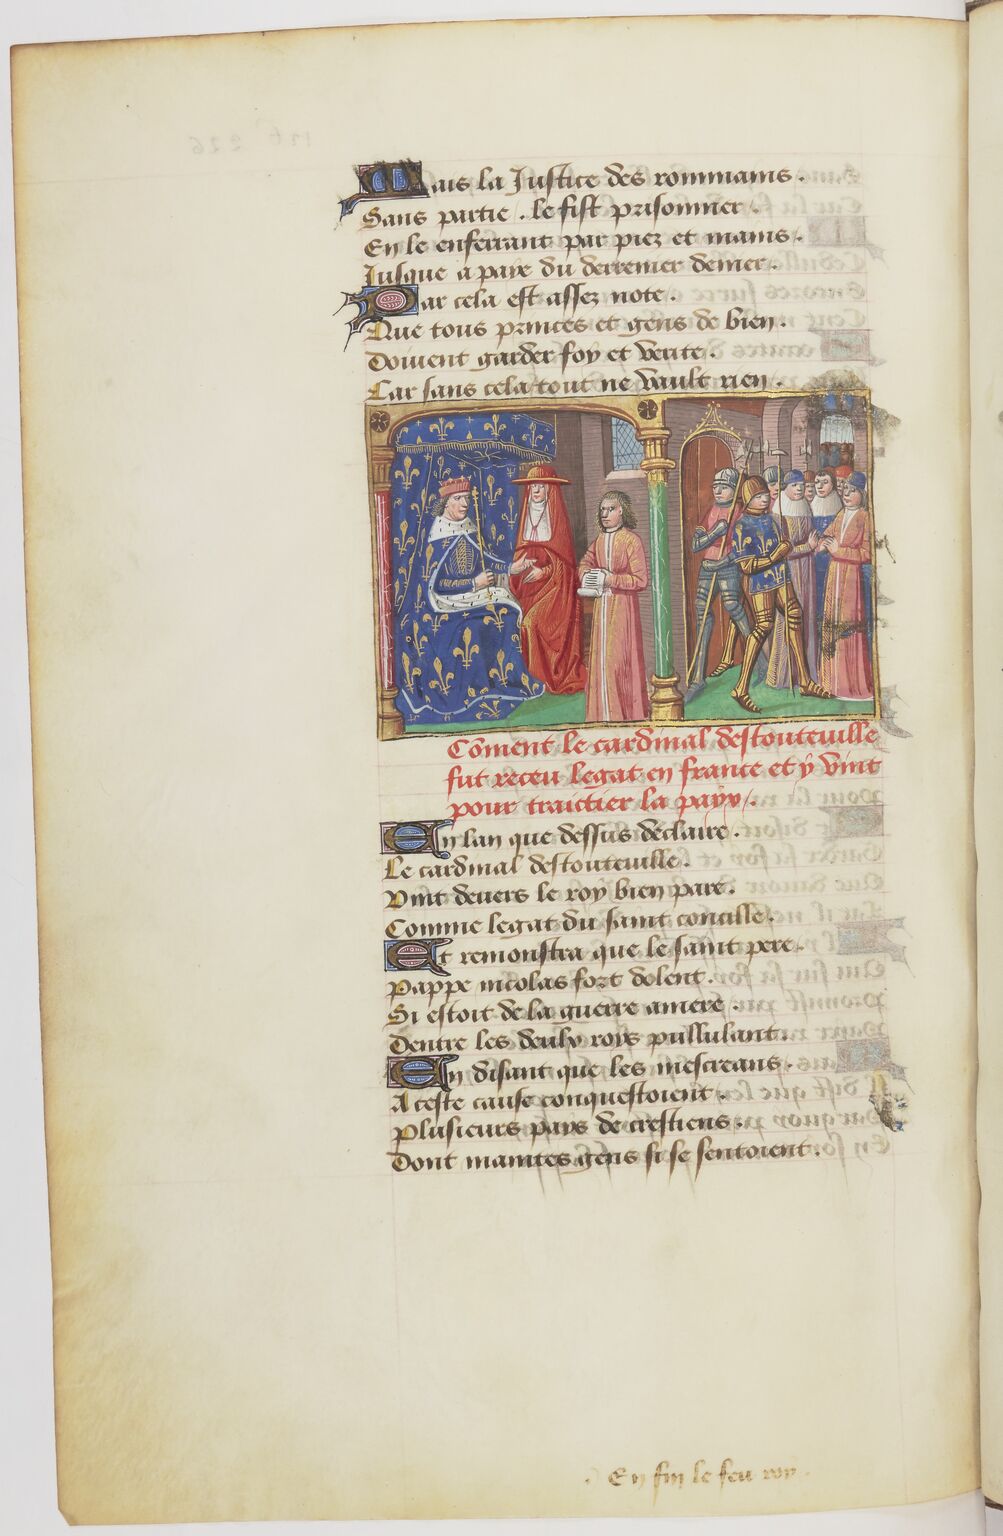 Mais la Justice des rommains.
Sans partie. le fist prisonnier.
En le enferrant par piez et mains.
Jusque a paye du derrenier denier.
Par cela est assez note.
Que tous princes et gens de bien.
Doivent garder foy et verite.
Car sans cela tout ne vault rien.
Cõment le cardinal destouteuille
fut receu legat en france et y vint
pour traictier la paix.
En lan que dessus declaire.
Le cardinal destouteuille.
Vint deuers le roy bien pare.
Comme legat du saint concille.
Et remonstra que le saint pere.
Pappe nicolas fort dolent.
Si estoit de la guerre amere.
Dentre les deulx roys pullulant.
En disant que les mescreans.
A ceste cause conquestoient.
Plusieurs pays de crestiens.
Dont maintes gens si se sentoient.
En fin le feu roy.